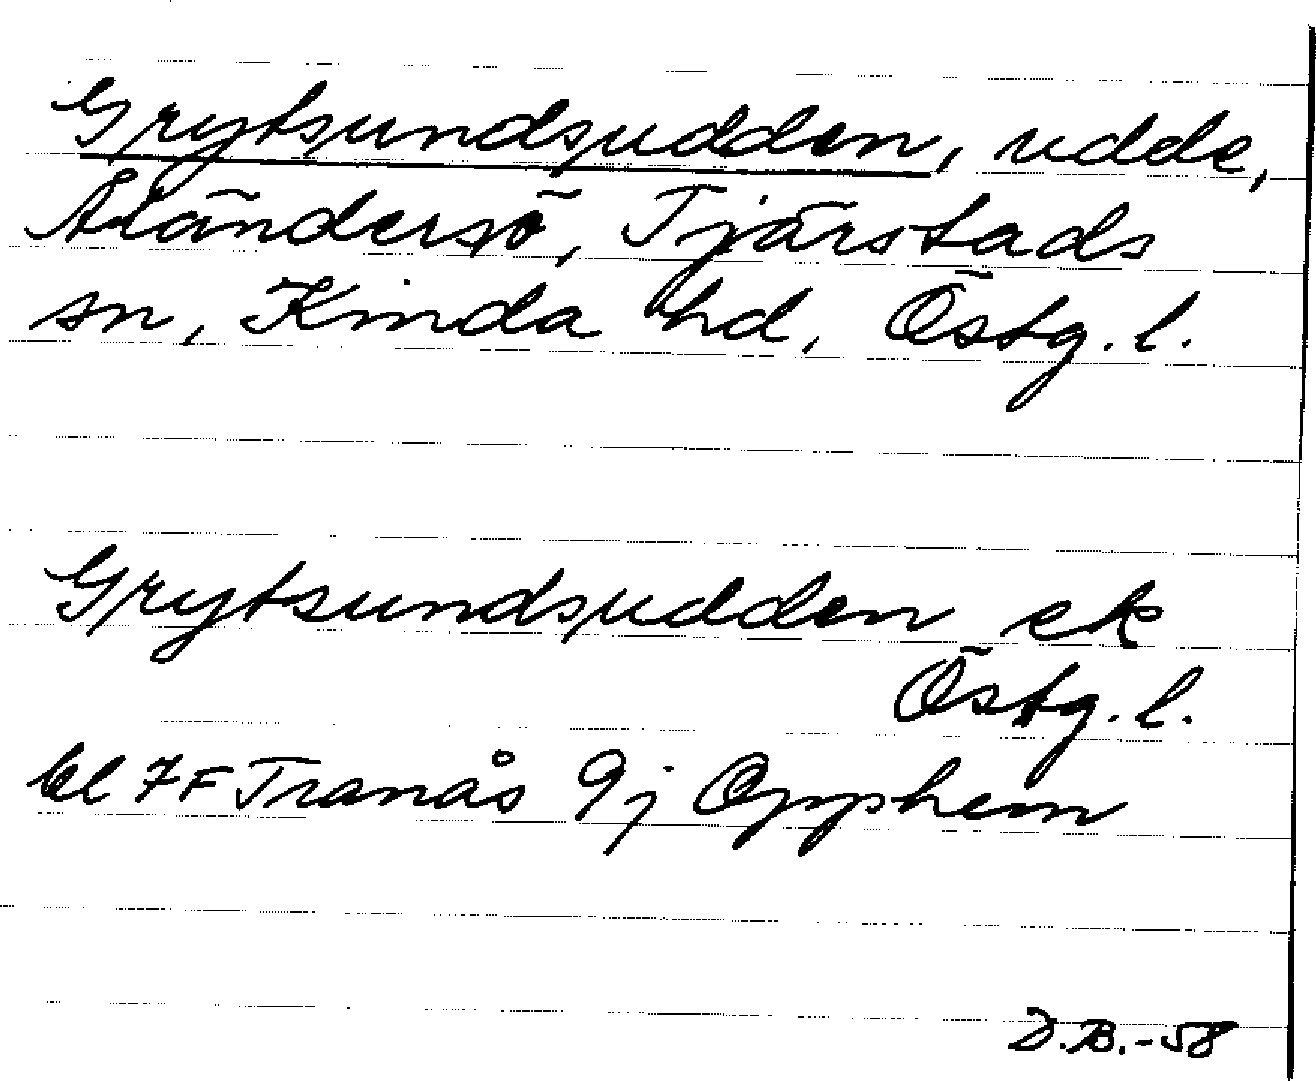 Grytsundsudden, udde,
Åländersö, Tjärstads
sn, Kinda hd, Östg. l.
Grytsundsudden ek
Östg. l.
bl 7F Tranås 9j Opphem
D.B.-58